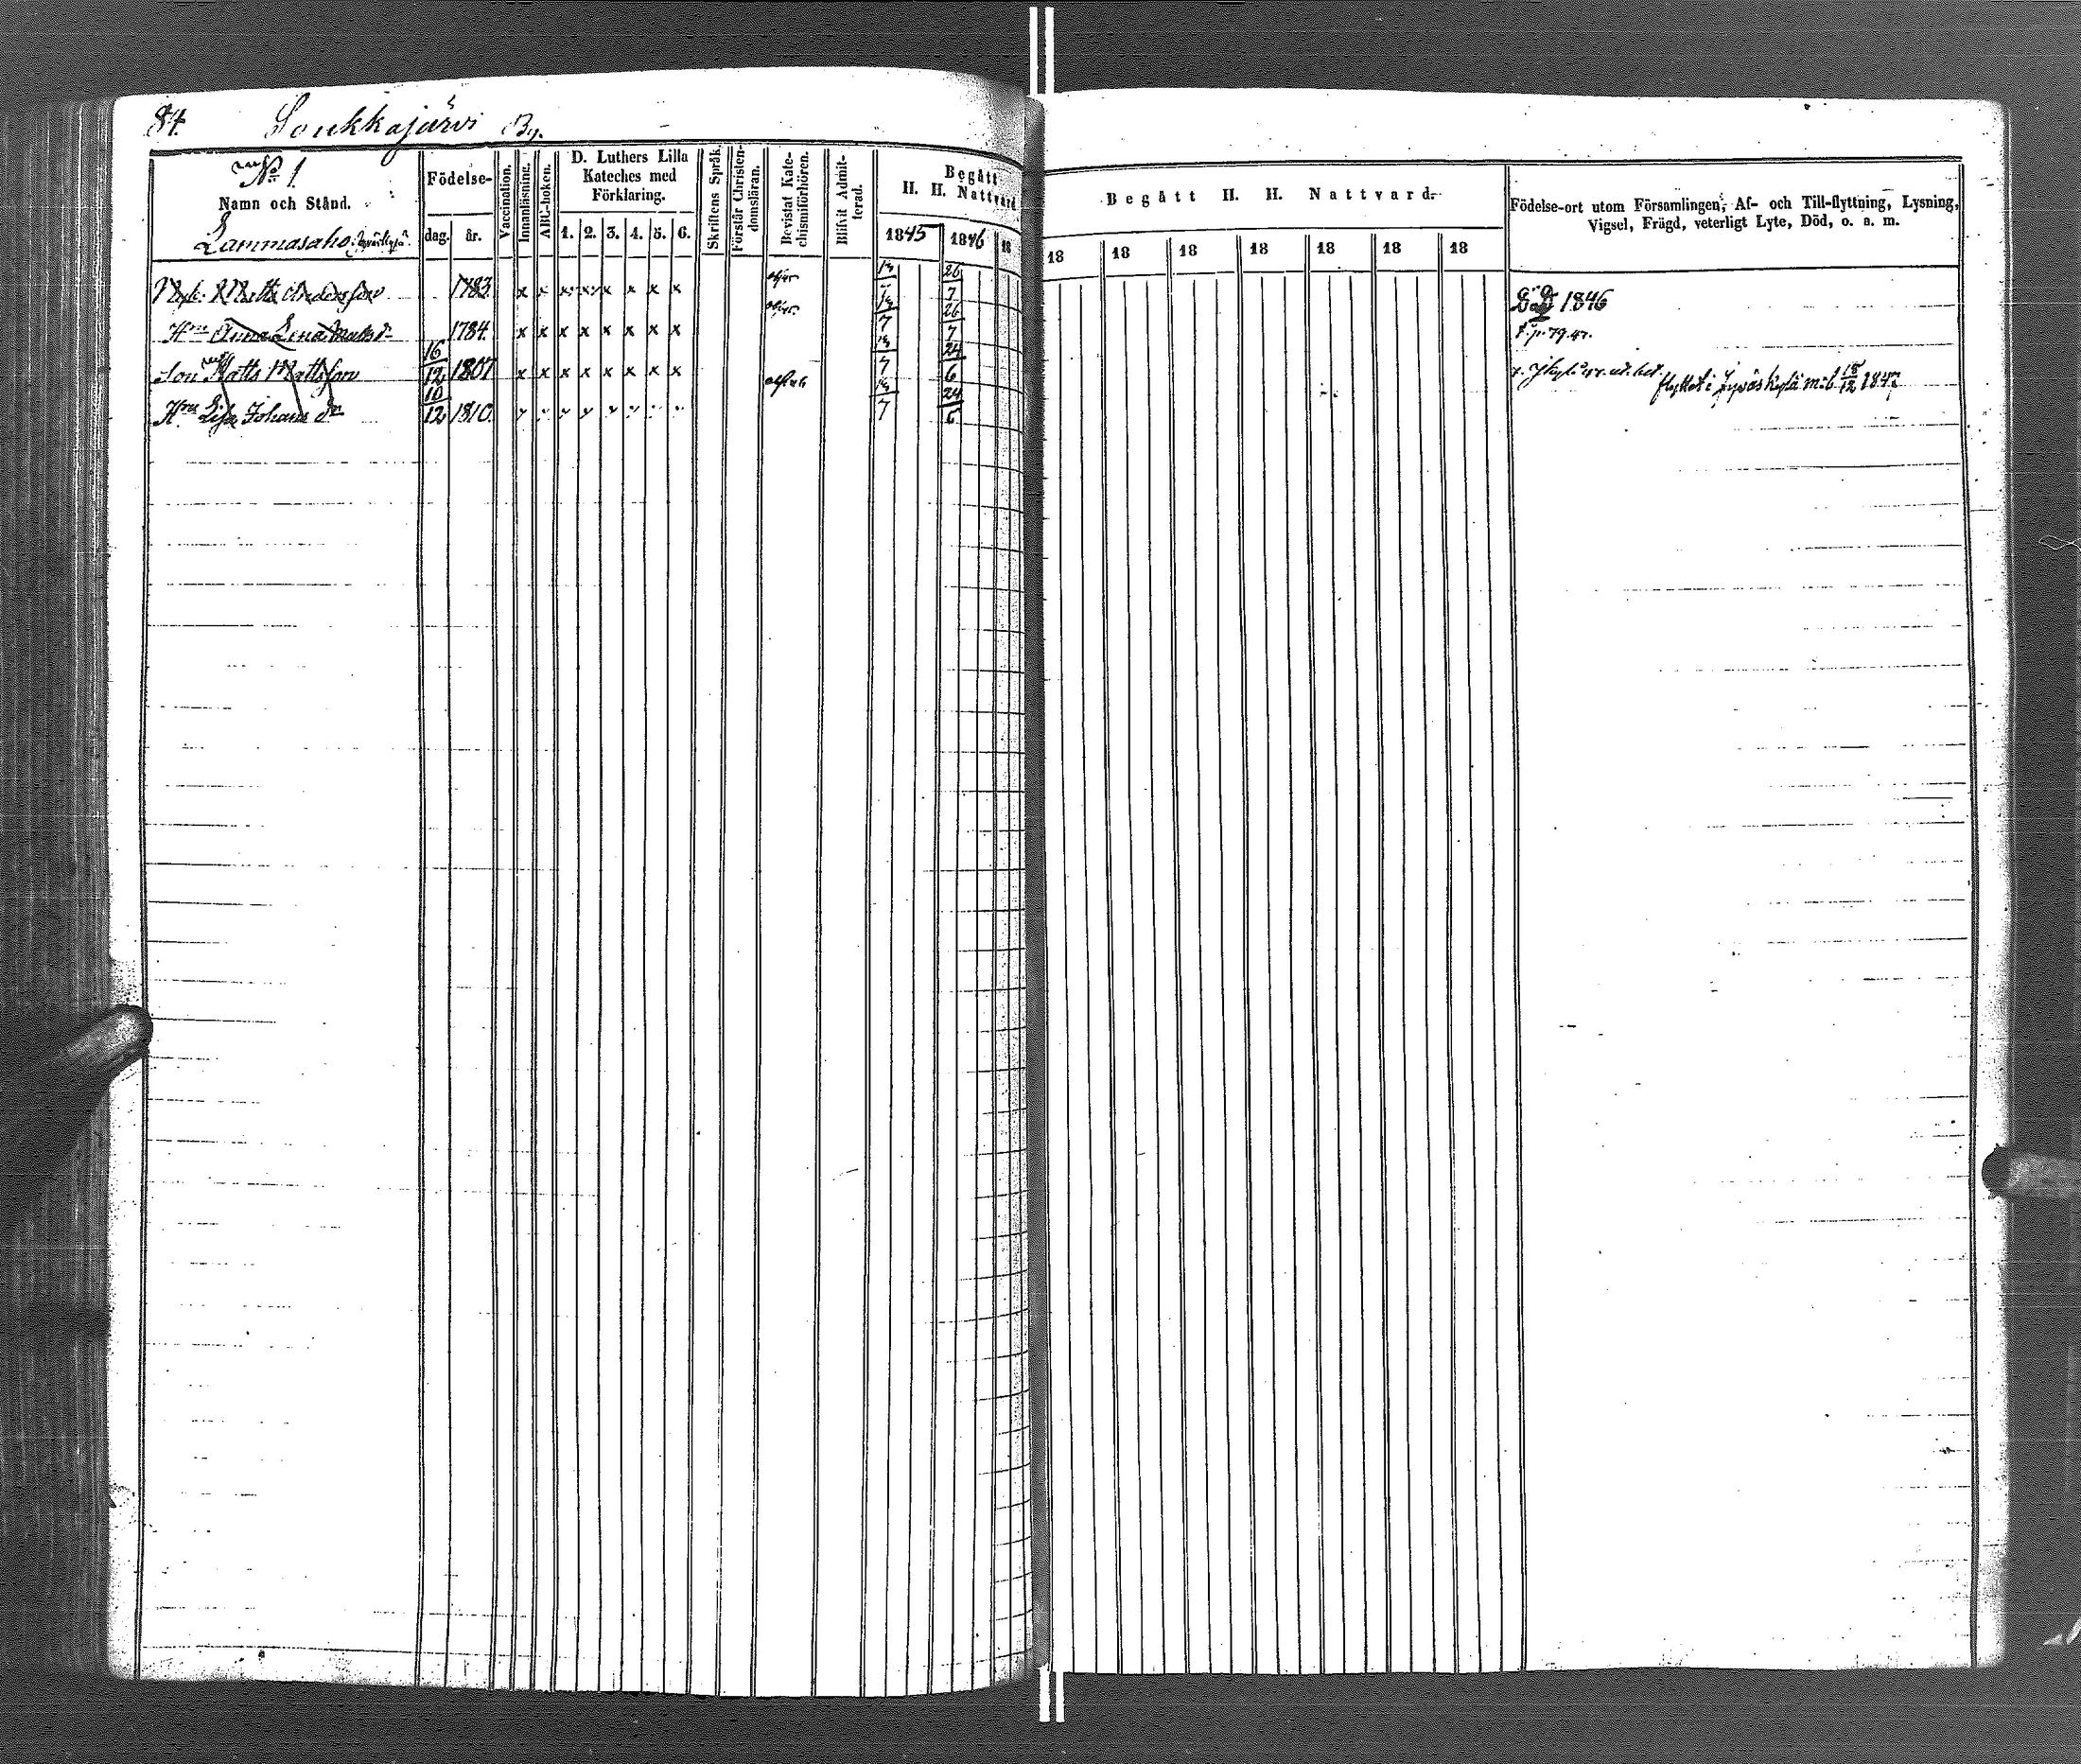 84. Soukkajärvi By.
No 1.
Namn och Stånd.
Lammasaho
Födelse-
dag. år.
Vaccination.
Innanläsning.
ABC-boken.
D. Luthers Lilla
Kateches med
Förklaring.
1. 2. 3. 4. 5. 6.
Skriftens Språk.
Förstår Christen-
domsläran.
Bevistat Kate-
chismiförhören.
Blifvit Admit-
terad.
Begått
H. H. Nattvard
1845 1846 18
Begått H. H. Nattvard.
18 18 18 18 18 18 18
Födelse-ort utom Församlingen, Af- och Till-flyttning, Lysning,
Vigsel, Frägd, veterligt Lyte, Död, o. s. m.
Matts Andersson 1783. x x x x x x x x 26/7 Död 1846
Hru Anna Lena Matsdr 1784. x x x x x x x x 7 26/7
Son Matts Mattsson 16/12 1807 x x x x x x x x 7 24/6 flyttat i Jyväskylä m: b. 18/12 1847
Hru Lisa Johansdr 10/12 1810. 7 24/6